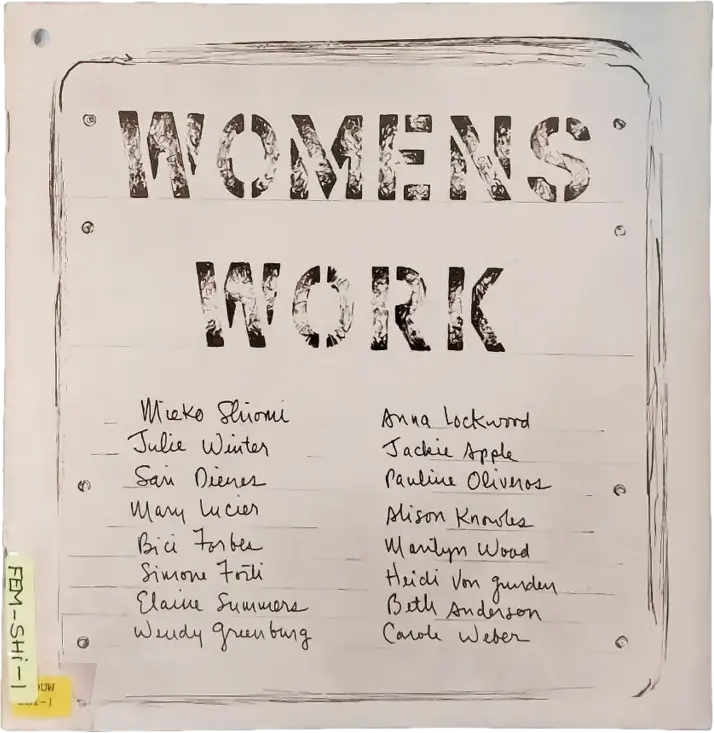 WOMENS
WORK
Mieko Shiomi
Julie Winter
Sari Dienes
Mary Lucier
Bici Forbes
Simone Forti
Elaine Summers
Wendy Greenburg
Anna Lockwood
Jackie Apple
Pauline Oliveros
Alison Knowles
Marilyn Wood
Heidi Von Gunden
Beth Anderson
Carole Weber
FEM-SHi-1